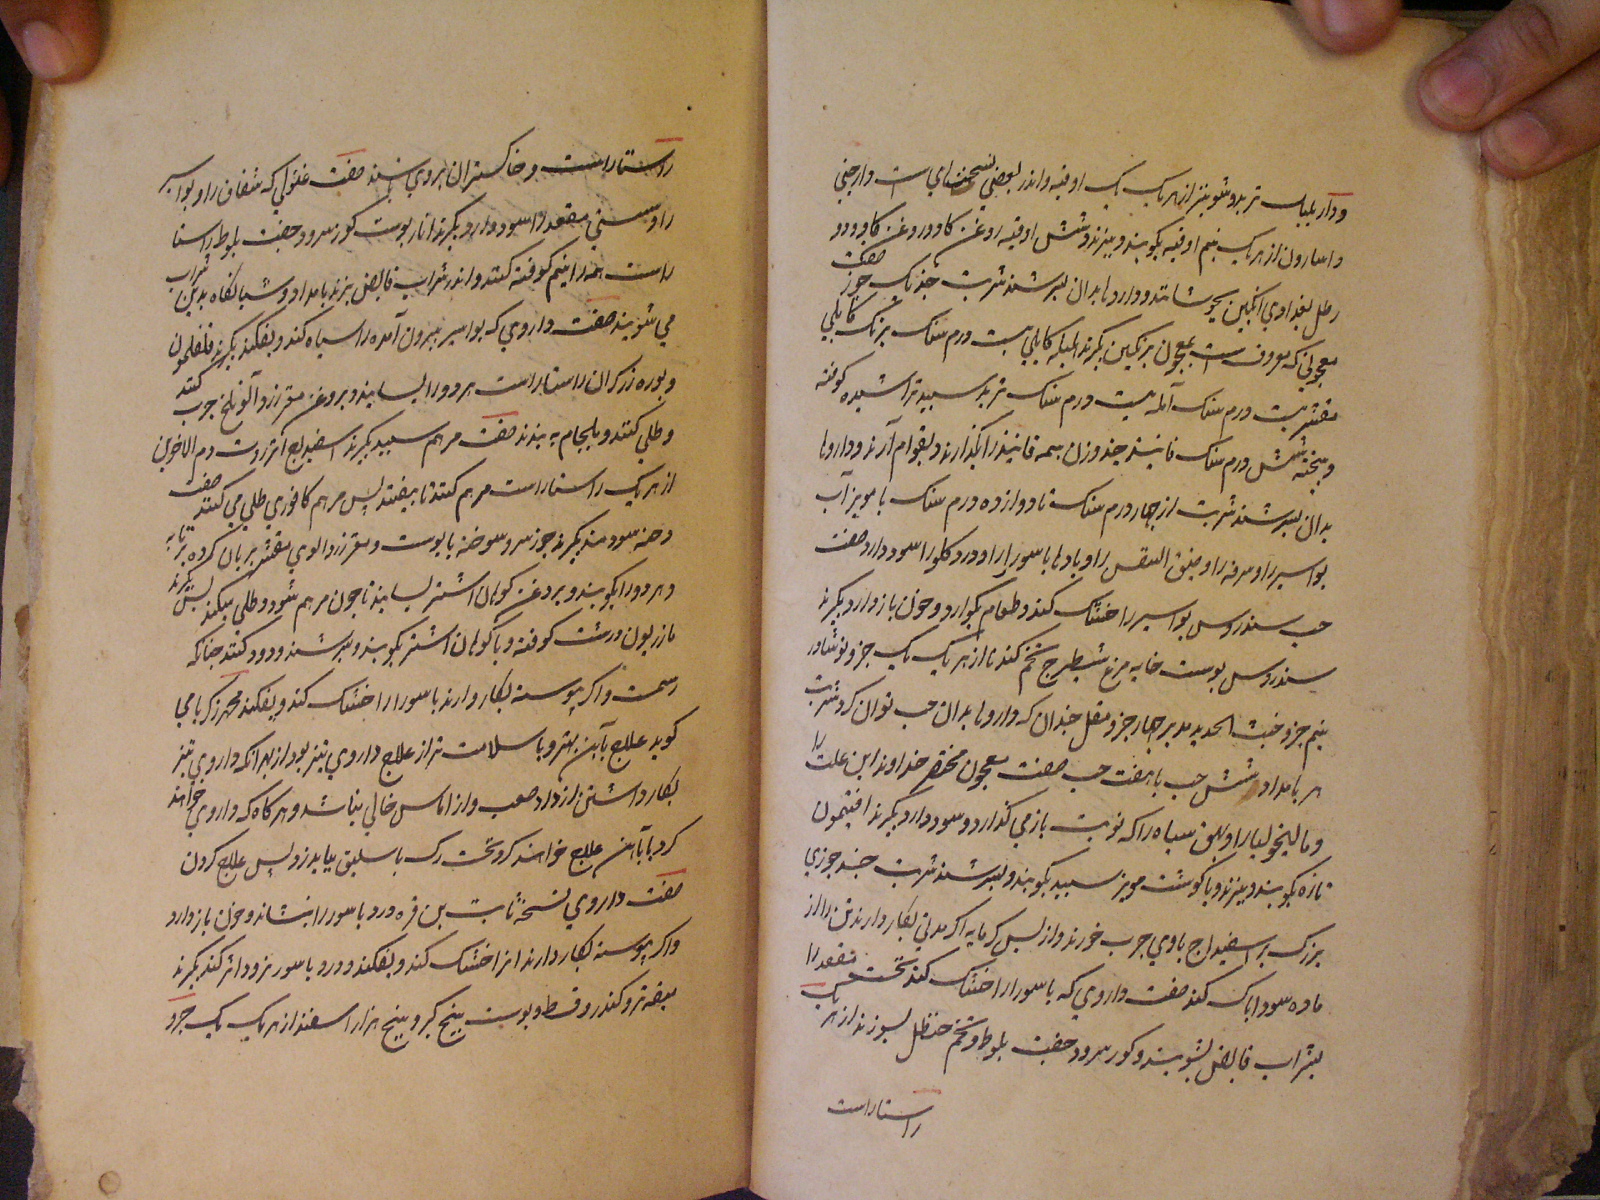 تربد و شونیز از هر یک یک اوقیه و اندر بعضی
و اسارون از هر یک نیم اوقیه بکوبند و ببزند و شش اوقیه روغن کاو و روغن کاو دو
رطل بغدادی انکبین بجوشانند و داروها بدان بسرشند شربت چند یک جوز صفت
معجونی که معروف است بمعجون بزنکبین بکیرند هلیله کابلی بیست درم سنک برنک کابلی
مقشر بیست درم سنک آمله بیست درم سنک تربد سپید تراشیده کوفته
و بیخته شش درم سنک فانیذ چند وزن همه فانیذ را بکذارند و بقوام آرند و داروها
بدان بسرشند شربت از چهار درم سنک تا دوازده درم سنک با مویز آب
بواسیر را و سرفه را و ضیق النفس را و بادها باسور را و درد کلو را سود دارد صفت
حب سندروس بواسیر را خشک کند و طعام بکوارد و خون باز دارد بکیرند
سندروس پوست خایه مرغ شیطرج تخم کندنا از هر یک یک جزو نوشادر
نیم جزو خبث الحدید مدبر چهار جزو مقل چندان که داروها بدان حب توان کرد شربت
هر بامداد شش حب یا هفت حب صفت معجون مختصر خداوند این علت را
و مالیخولیا را و بهق سیاه را که نوبت باز می کذارد و سود دارد بکیرند افتیمون
تازه بکوبند و ببزند و با کوشت مویز سپید بکوبند و بسرشند شربت چند جوزی
بزرک بر اسفیداج باوی چرب خورند و از پس کرمابه اکر مدتی بکار دارند تن را از
ماده سودا پاک کند صفت داروی که باسور را خشک کند نخست مقعد را
بشراب قابض بشویند و کوز سرو و جفت بلوط و تخم حنظل بسوزند از هر یک
راستاراست
راستاراست و خاکستر ان بر وی صفت غسولی که شقاق را و بواسیر
را و سستی مقعد را سود دارد بکیرند انار پوست کوز سرو و جفت بلوط راستا
راست همه را نیم کوفته کنند و اندر شراب قابض بپزند بامداد و شبانکاه بدین شراب
می شویند صفت داروی که بواسیر بیرون آمده را سیاه کند و بفکند بکیرند قلقلمون
و بوره زرکران راستاراست هر دو را بسایند و بروغن مغز زرد آلو تلخ چرب کنند
و طلی کنند و بلجام به بندند صفت مرهم سپید بکیرند اسفیداج انزروت دم الاخوین
از هر یک راستاراست مرهم کنند تا بیفتد پس مرهم کافوری طلی می کنند صفت
دخنه سودمند بکیرند جوز سرو سوخته با پوست و مغز زرد الوی مقشر بریان کرده برتابه
و هر دو را بکوبند و بروغن کوهان اشتر بسایند تا چون مرهم شود و طلی میکنند بکیرند
مازریون درشت کوفته و با کوهان اشتر بکوبند و بسرشند و دود کنند چنانکه
رسمست و اکر پیوسته بکار دارند باسور را خشک کند و بفکند محمد زکریا می
کوید علاج بآهن بهتر و با سلامت تر از علاج داروی تیز بود از بهر انکه داروی تیز
بکار داشتن از درد صعب و از اماس خالی نباشد و هر کاه که داروی خواهند
کرد یا بآهن علاج خواهند کرد نخست رک باسلیق بباید زد پس علاج کردن
صفت داروی نسخه ثابت بن قره درد باسور را بنشاند و خون باز دارد
و اکر پیوسته بکار دارند انرا خشک کند و بفکند و درد باسور زود اثر کند بکیرند
میعه تر و کندر و قسط و پوست بیخ کبر و بیخ هزار اسفند از هر یک یک جزو